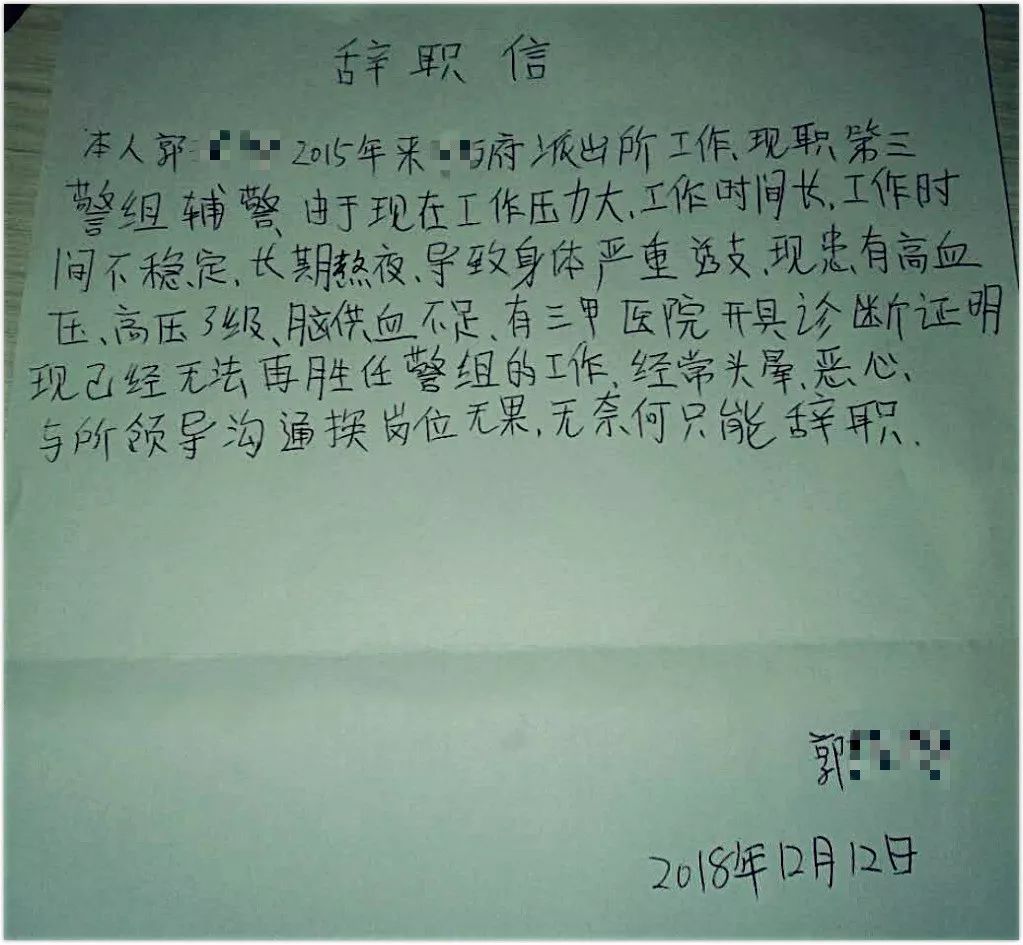 辞职信
本人郭 2015年来 府派出所工作、现职第三
警组辅警、由于现在工作压力大、工作时间长、工作时
间不稳定、长期熬夜、导致身体严重透支、现患有高血
压、高压3级、脑供血不足、有三甲医院开具诊断证明
现已经无法再胜任警组的工作、经常头晕、恶心、
与所领导沟通换岗位无果、无奈何只能辞职.
郭
2018年12月12日